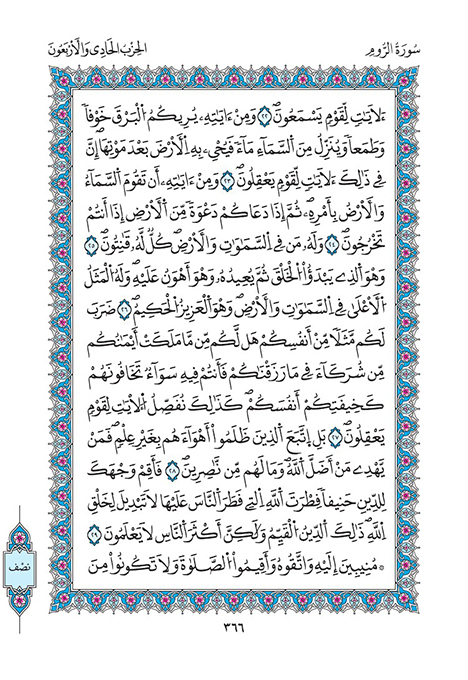 سُورَةُ الرُّومِ
الحِزْبُ الحَادِي وَالأَرْبَعُونَ
ءَلَايَٰتٖ لِّقَوْمٖ يَسْمَعُونَۖ ٢٢ وَمِنْ ءَايَٰتِهِۦ يُرِيكُمُ اُ۬لْبَرْقَ خَوْفاٗ
وَطَمَعاٗ وَيُنَزِّلُ مِنَ اَ۬لسَّمَآءِ مَآءٗ فَيُحْيِۦ بِهِ اِ۬لْأَرْضَ بَعْدَ مَوْتِهَآۖ إِنَّ
فِي ذَٰلِكَ ءَلَايَٰتٖ لِّقَوْمٖ يَعْقِلُونَۖ ٢٣ وَمِنْ ءَايَٰتِهِۦٓ أَن تَقُومَ اَ۬لسَّمَآءُ
وَالْأَرْضُ بِأَمْرِهِۦۖ ثُمَّ إِذَا دَعَاكُمْ دَعْوَةٗ مِّنَ اَ۬لْأَرْضِ إِذَآ أَنتُمْ
تَخْرُجُونَۖ ٢٤ وَلَهُۥ مَن فِي اِ۬لسَّمَٰوَٰتِ وَالْأَرْضِۖ كُلّٞ لَّهُۥ قَٰنِتُونَۖ ٢٥
وَهُوَ اَ۬لذِي يَبْدَؤُاْ اُ۬لْخَلْقَ ثُمَّ يُعِيدُهُۥ وَهُوَ أَهْوَنُ عَلَيْهِۖ وَلَهُ اُ۬لْمَثَلُ
اُ۬لْأَعْلَىٰ فِي اِ۬لسَّمَٰوَٰتِ وَالْأَرْضِۖ وَهُوَ اَ۬لْعَزِيزُ اُ۬لْحَكِيمُۖ ٢٦ ضَرَبَ
لَكُم مَّثَلاٗ مِّنْ أَنفُسِكُمْ هَل لَّكُم مِّن مَّا مَلَكَتْ أَيْمَٰنُكُم
مِّن شُرَكَآءَ فِي مَا رَزَقْنَٰكُمْ فَأَنتُمْ فِيهِ سَوَآءٞ تَخَافُونَهُمْ
كَخِيفَتِكُمْ أَنفُسَكُمْۖ كَذَٰلِكَ نُفَصِّلُ اُ۬لْأٓيَٰتِ لِقَوْمٖ
يَعْقِلُونَۖ ٢٧ بَلِ اِ۪تَّبَعَ اَ۬لذِينَ ظَلَمُوٓاْ أَهْوَآءَهُم بِغَيْرِ عِلْمٖۖ فَمَنْ
يَّهْدِے مَنْ أَضَلَّ اَ۬للَّهُۖ وَمَا لَهُم مِّن نَّٰصِرِينَۖ ٢٨ فَأَقِمْ وَجْهَكَ
لِلدِّينِ حَنِيفاٗ فِطْرَتَ اَ۬للَّهِ اِ۬لتِي فَطَرَ اَ۬لنَّاسَ عَلَيْهَا لَا تَبْدِيلَ لِخَلْقِ
اِ۬للَّهِۖ ذَٰلِكَ اَ۬لدِّينُ اُ۬لْقَيِّمُ وَلَٰكِنَّ أَكْثَرَ اَ۬لنَّاسِ لَا يَعْلَمُونَۖ ٢٩
۞ مُنِيبِينَ إِلَيْهِ وَاتَّقُوهُ وَأَقِيمُواْ اُ۬لصَّلَوٰةَ وَلَا تَكُونُواْ مِنَ
نصْف
٣٦٦